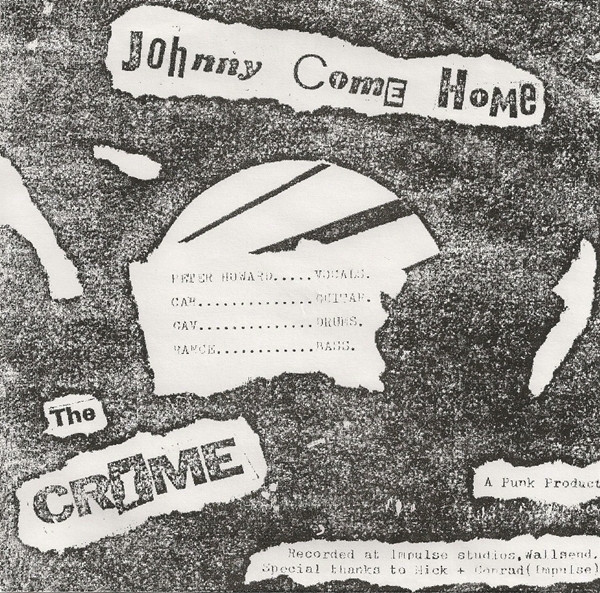 Johnny Come Home
PETER HOWARD.....VOCALS.
CAB..............GUITAR.
GAV..............DRUMS.
RANCE............BASS.
The
CRIME
A Punk Product
Recorded at Impulse studios,Wallsend.
Special thanks to Mick + Conrad(Impulse)